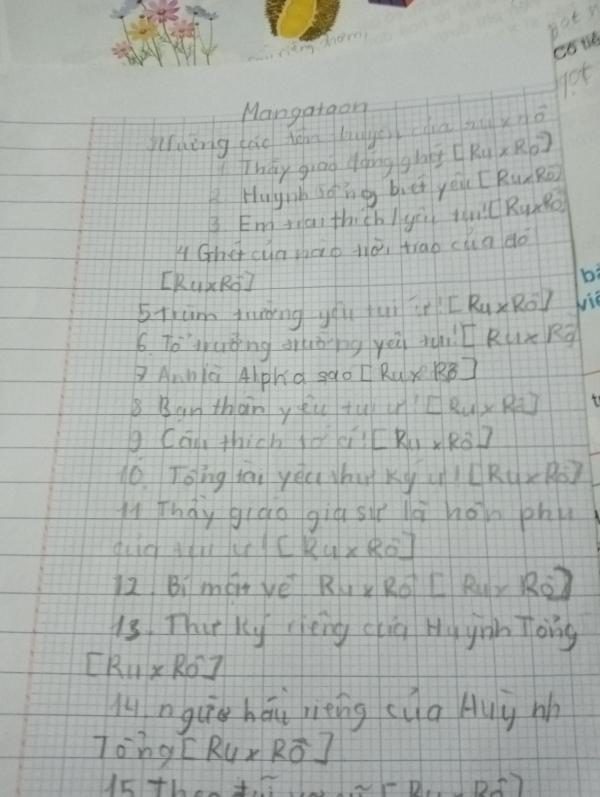 Mangatoon
Những các tên truyện của ru x rồ
1 Thầy giáo đáng ghét [Ru x Rồ]
2. Huynh sống biết yêu [Ru x Rồ]
3. Em trai thích / yêu tui! [Ru x Rồ]
4 Ghét của nào trời trao của đó
[Ru x Rồ]
5 trùm trường yêu tui ư! [Ru x Rồ]
6. Tổ trưởng trường yêu tui! [Ru x Rồ]
7 Anh là Alpha sao [Ru x Rồ]
8 Bạn thân yêu tui ư! [Ru x Rồ]
9 Cậu thích tớ á! [Ru x Rồ]
10. Tổng tài yêu thư ký ư! [Ru x Rồ]
11 Thầy giáo gia sư là hôn phu
của tui ư! [Ru x Rồ]
12. Bí mật về Ru x Rồ [Ru x Rồ]
13. Thư ký riêng của Huỳnh Tổng
[Ru x Rồ]
14. người hầu riêng của Huỳnh
Tổng [Ru x Rồ]
15 Theo [Ru x Rồ]